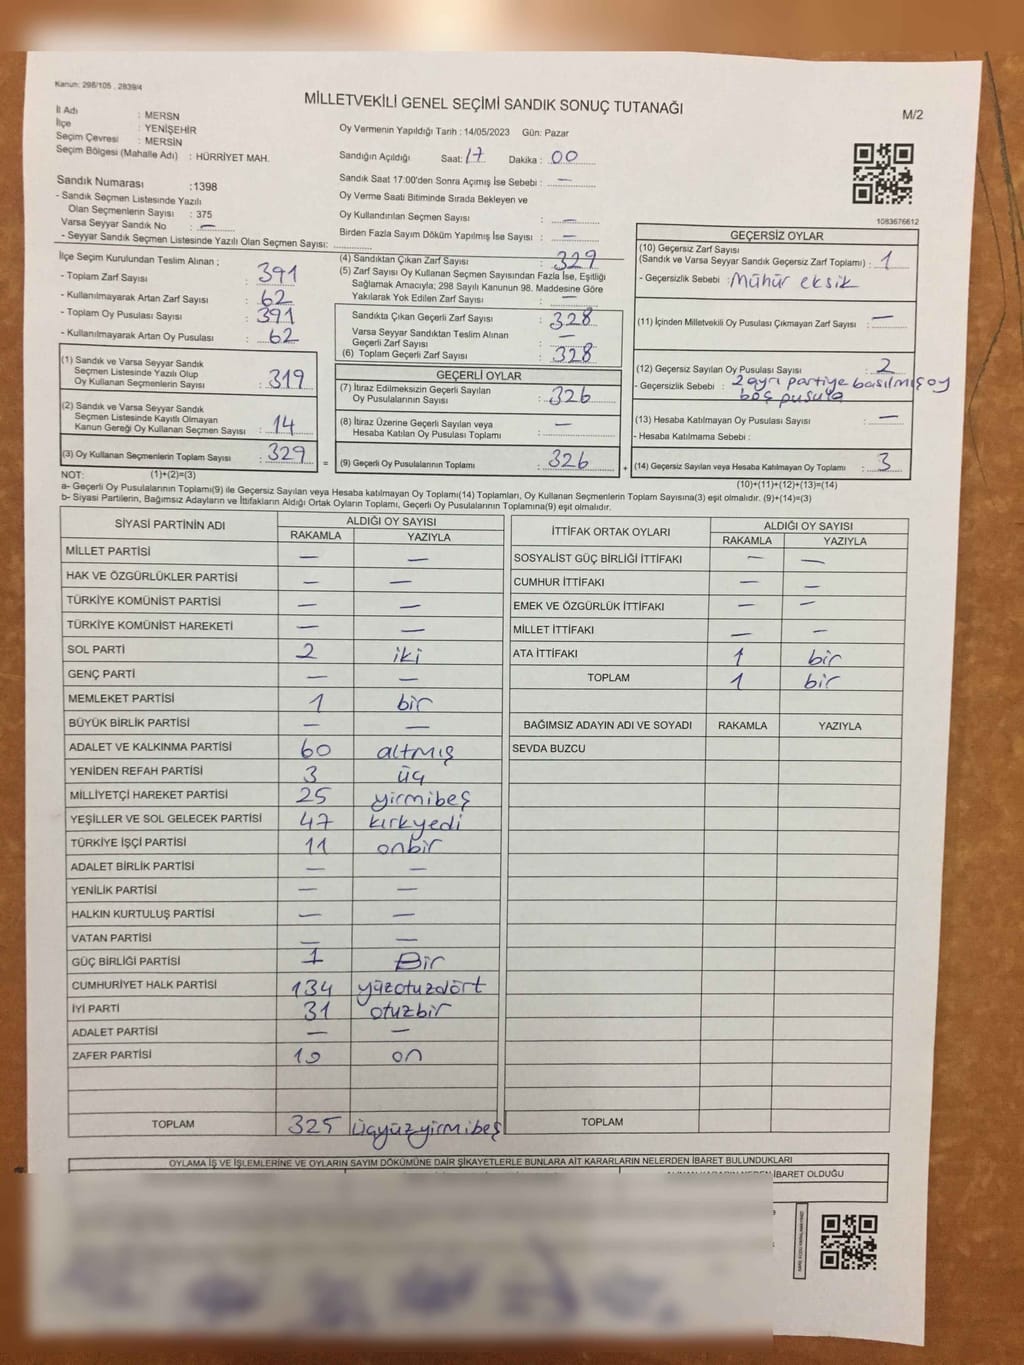 Kanun: 298/105 , 2839/4
MİLLETVEKİLİ GENEL SEÇİMİ SANDIK SONUÇ TUTANAĞI
M/2
İl Adı : MERSN
İlçe : YENİŞEHİR
Seçim Çevresi : MERSİN
Seçim Bölgesi (Mahalle Adı) : HÜRRİYET MAH.
Oy Vermenin Yapıldığı Tarih : 14/05/2023 Gün: Pazar
Sandığın Açıldığı Saat: 17 Dakika : 00
Sandık Saat 17:00'den Sonra Açımış İse Sebebi : —
Oy Verme Saati Bitiminde Sırada Bekleyen ve
Oy Kullandırılan Seçmen Sayısı : —
Birden Fazla Sayım Döküm Yapılmış İse Sayısı : —
Sandık Numarası :1398
- Sandık Seçmen Listesinde Yazılı
Olan Seçmenlerin Sayısı : 375
Varsa Seyyar Sandık No : —
- Seyyar Sandık Seçmen Listesinde Yazılı Olan Seçmen Sayısı:
1083676612
İlçe Seçim Kurulundan Teslim Alınan ;
- Toplam Zarf Sayısı : 391
- Kullanılmayarak Artan Zarf Sayısı : 62
- Toplam Oy Pusulası Sayısı : 391
- Kullanılmayarak Artan Oy Pusulası : 62
(1) Sandık ve Varsa Seyyar Sandık
Seçmen Listesinde Yazılı Olup
Oy Kullanan Seçmenlerin Sayısı : 319
(2) Sandık ve Varsa Seyyar Sandık
Seçmen Listesinde Kayıtlı Olmayan
Kanun Gereği Oy Kullanan Seçmen Sayısı : 14
(3) Oy Kullanan Seçmenlerin Toplam Sayısı : 329
(4) Sandıktan Çıkan Zarf Sayısı : 329
(5) Zarf Sayısı Oy Kullanan Seçmen Sayısından Fazla İse, Eşitliği
Sağlamak Amacıyla; 298 Sayılı Kanunun 98. Maddesine Göre
Yakılarak Yok Edilen Zarf Sayısı : —
Sandıkta Çıkan Geçerli Zarf Sayısı : 328
Varsa Seyyar Sandıktan Teslim Alınan
Geçerli Zarf Sayısı : —
(6) Toplam Geçerli Zarf Sayısı : 328
GEÇERLİ OYLAR
(7) İtiraz Edilmeksizin Geçerli Sayılan
Oy Pusulalarının Sayısı : 326
(8) İtiraz Üzerine Geçerli Sayılan veya
Hesaba Katılan Oy Pusulası Toplamı : —
= (9) Geçerli Oy Pusulalarının Toplamı : 326
GEÇERSİZ OYLAR
(10) Geçersiz Zarf Sayısı
(Sandık ve Varsa Seyyar Sandık Geçersiz Zarf Toplamı) : 1
- Geçersizlik Sebebi : Mühür eksik
(11) İçinden Milletvekili Oy Pusulası Çıkmayan Zarf Sayısı : —
(12) Geçersiz Sayılan Oy Pusulası Sayısı : 2
- Geçersizlik Sebebi : 2 ayrı partiye basılmış oy
boş pusula
(13) Hesaba Katılmayan Oy Pusulası Sayısı : —
- Hesaba Katılmama Sebebi :
+ (14) Geçersiz Sayılan veya Hesaba Katılmayan Oy Toplamı : 3
NOT: (1)+(2)=(3)
(10)+(11)+(12)+(13)=(14)
a- Geçerli Oy Pusulalarının Toplamı(9) ile Geçersiz Sayılan veya Hesaba katılmayan Oy Toplamı(14) Toplamları, Oy Kullanan Seçmenlerin Toplam Sayısına(3) eşit olmalıdır. (9)+(14)=(3)
b- Siyasi Partilerin, Bağımsız Adayların ve İttifakların Aldığı Ortak Oyların Toplamı, Geçerli Oy Pusulalarının Toplamına(9) eşit olmalıdır.
SİYASİ PARTİNİN ADI ALDIĞI OY SAYISI
RAKAMLA YAZIYLA
MİLLET PARTİSİ — —
HAK VE ÖZGÜRLÜKLER PARTİSİ — —
TÜRKİYE KOMÜNİST PARTİSİ — —
TÜRKİYE KOMÜNİST HAREKETİ — —
SOL PARTİ 2 iki
GENÇ PARTİ — —
MEMLEKET PARTİSİ 1 bir
BÜYÜK BİRLİK PARTİSİ — —
ADALET VE KALKINMA PARTİSİ 60 altmış
YENİDEN REFAH PARTİSİ 3 üç
MİLLİYETÇİ HAREKET PARTİSİ 25 yirmibeş
YEŞİLLER VE SOL GELECEK PARTİSİ 47 kırkyedi
TÜRKİYE İŞÇİ PARTİSİ 11 onbir
ADALET BİRLİK PARTİSİ — —
YENİLİK PARTİSİ — —
HALKIN KURTULUŞ PARTİSİ — —
VATAN PARTİSİ — —
GÜÇ BİRLİĞİ PARTİSİ 1 Bir
CUMHURİYET HALK PARTİSİ 134 yüzotuzdört
İYİ PARTİ 31 otuzbir
ADALET PARTİSİ — —
ZAFER PARTİSİ 10 on
TOPLAM 325 üçyüzyirmibeş
İTTİFAK ORTAK OYLARI ALDIĞI OY SAYISI
RAKAMLA YAZIYLA
SOSYALİST GÜÇ BİRLİĞİ İTTİFAKI — —
CUMHUR İTTİFAKI — —
EMEK VE ÖZGÜRLÜK İTTİFAKI — —
MİLLET İTTİFAKI — —
ATA İTTİFAKI 1 bir
TOPLAM 1 bir
BAĞIMSIZ ADAYIN ADI VE SOYADI RAKAMLA YAZIYLA
SEVDA BUZCU
TOPLAM
OYLAMA İŞ VE İŞLEMLERİNE VE OYLARIN SAYIM DÖKÜMÜNE DAİR ŞİKAYETLERLE BUNLARA AİT KARARLARIN NELERDEN İBARET BULUNDUKLARI
İBARET OLDUĞU